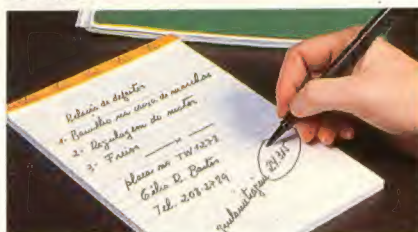 Relação de defeitos
1- Barulho na caixa de marchas
2- Regulagem do motor
3- Freios
placa no TW1277
Célia R. Bastos
Tel. 208-2779
quilometragem 24315